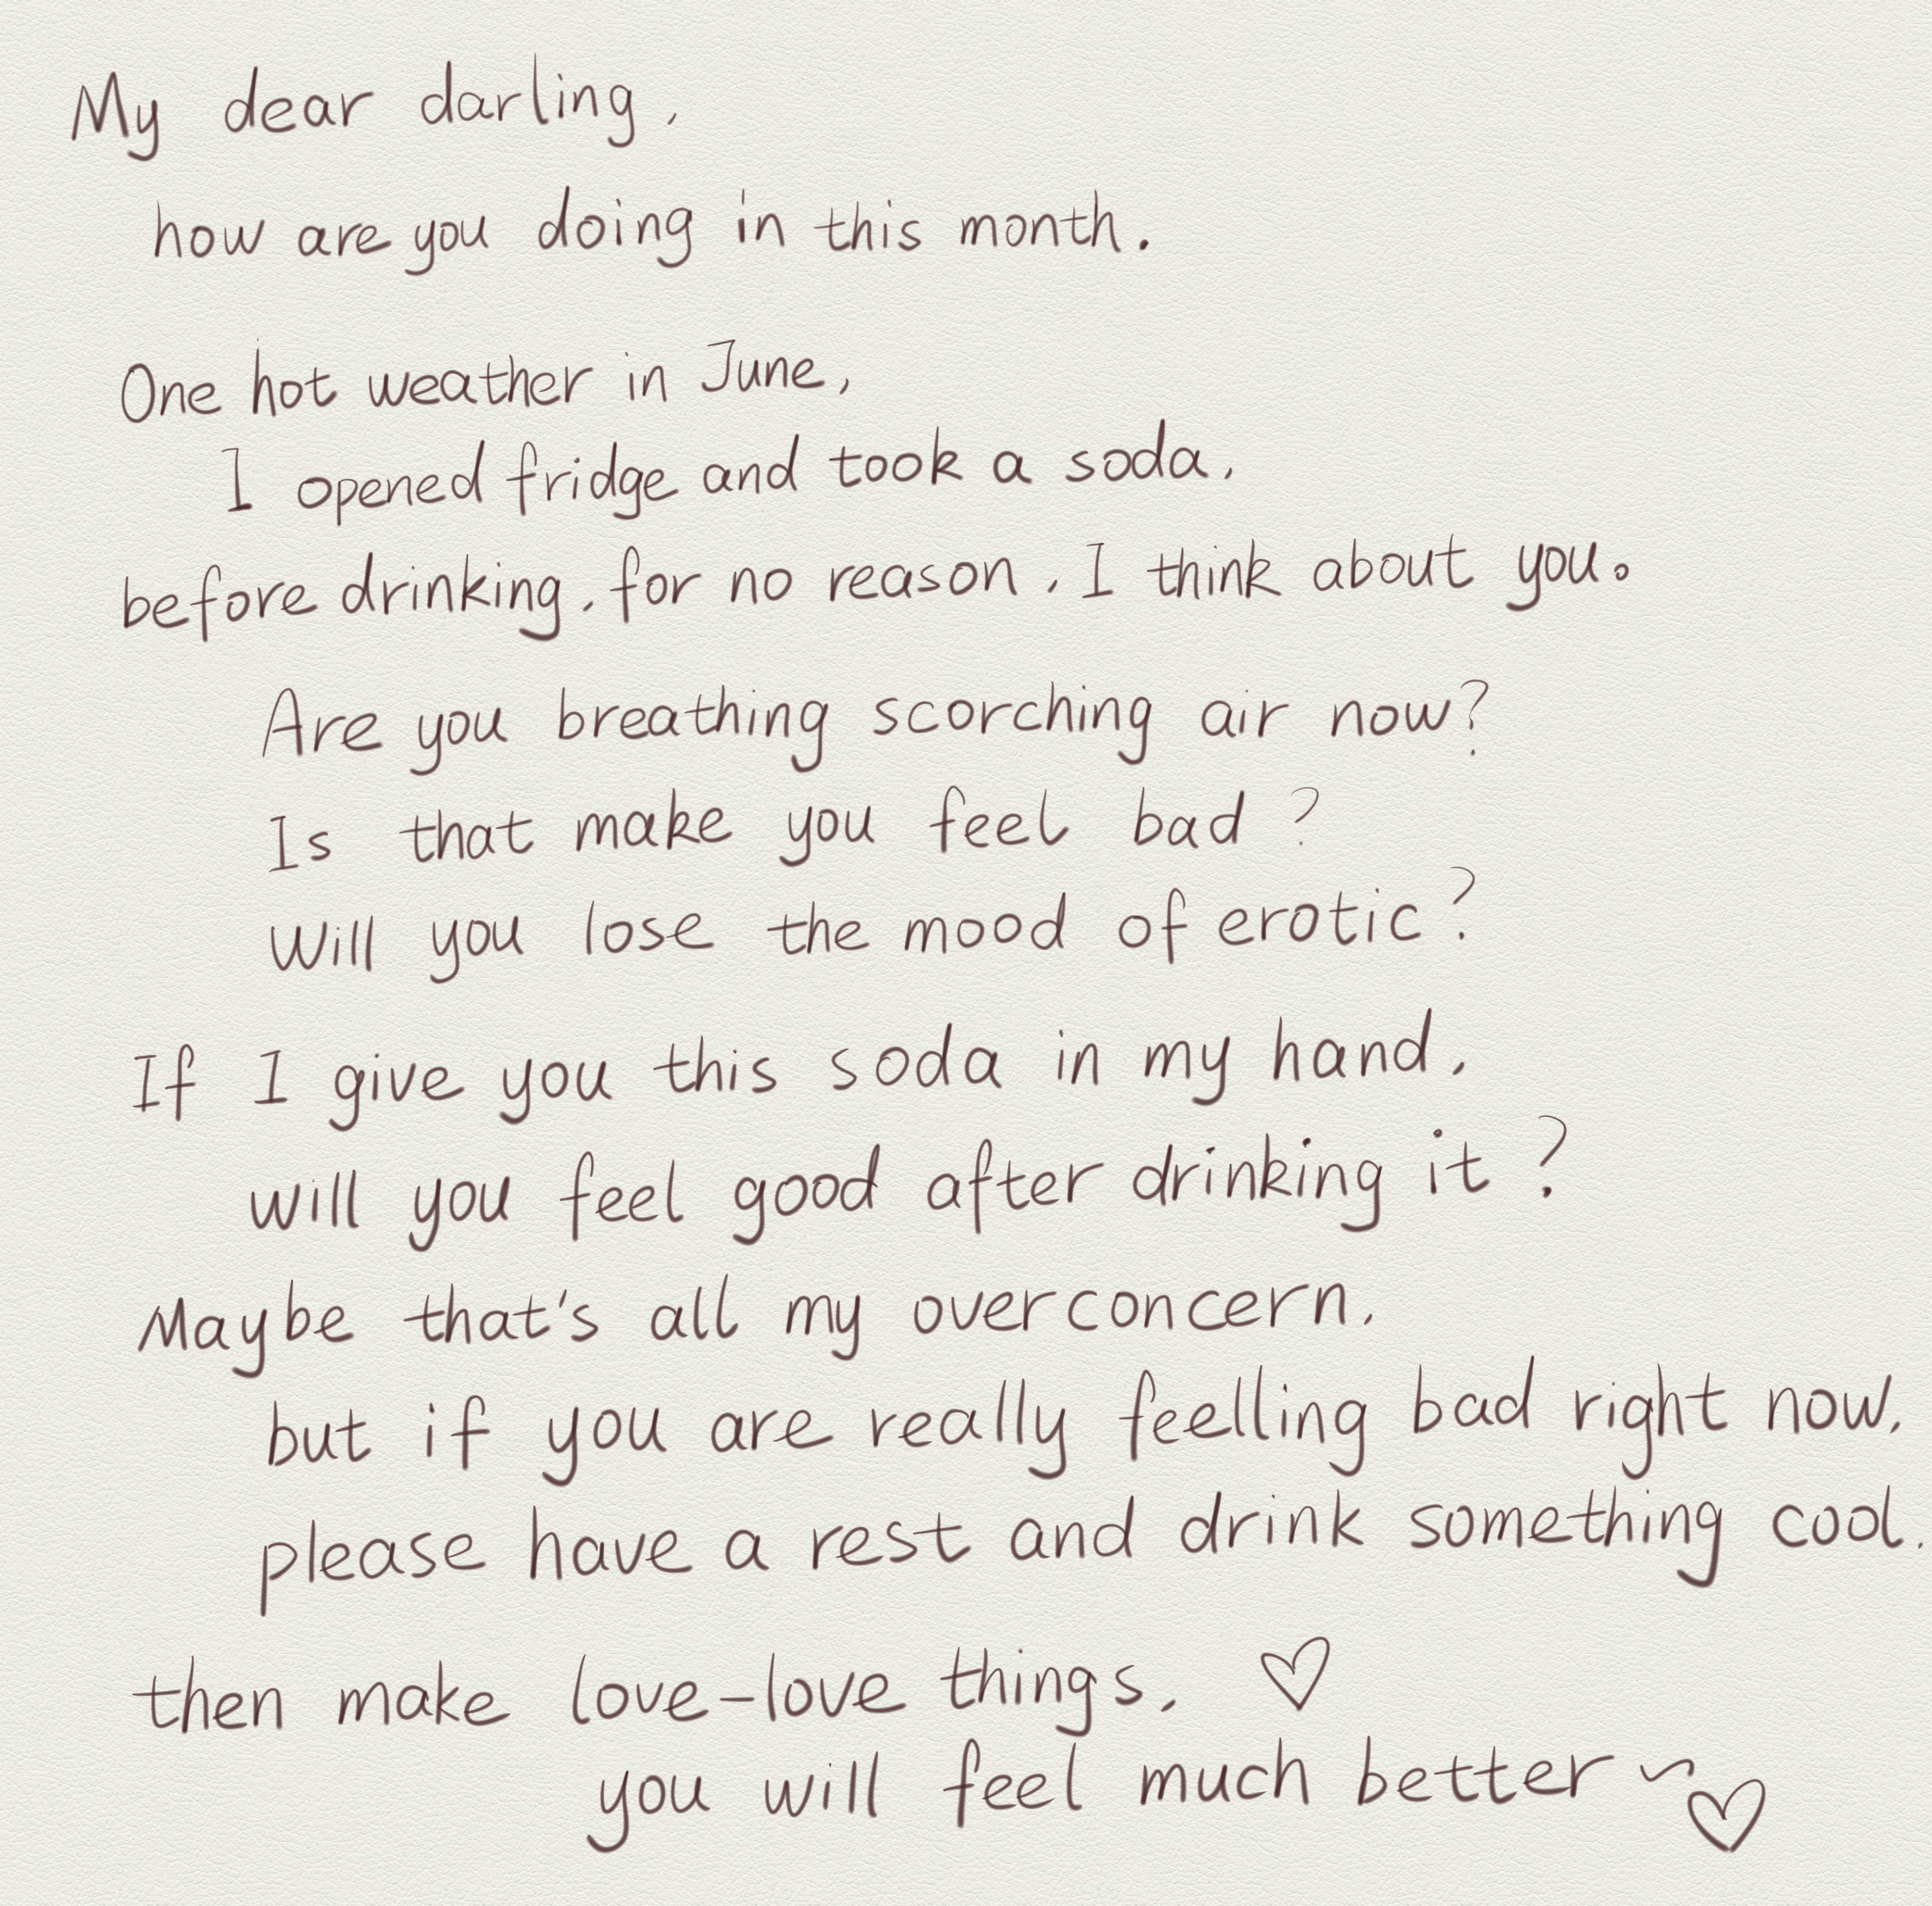 My dear darling,
how are you doing in this month.
One hot weather in June,
I opened fridge and took a soda,
before drinking, for no reason, I think about you。
Are you breathing scorching air now?
Is that make you feel bad?
Will you lose the mood of erotic?
If I give you this soda in my hand,
will you feel good after drinking it?
Maybe that's all my overconcern,
but if you are really feelling bad right now,
please have a rest and drink something cool.
then make love-love things, ♡
you will feel much better~♡